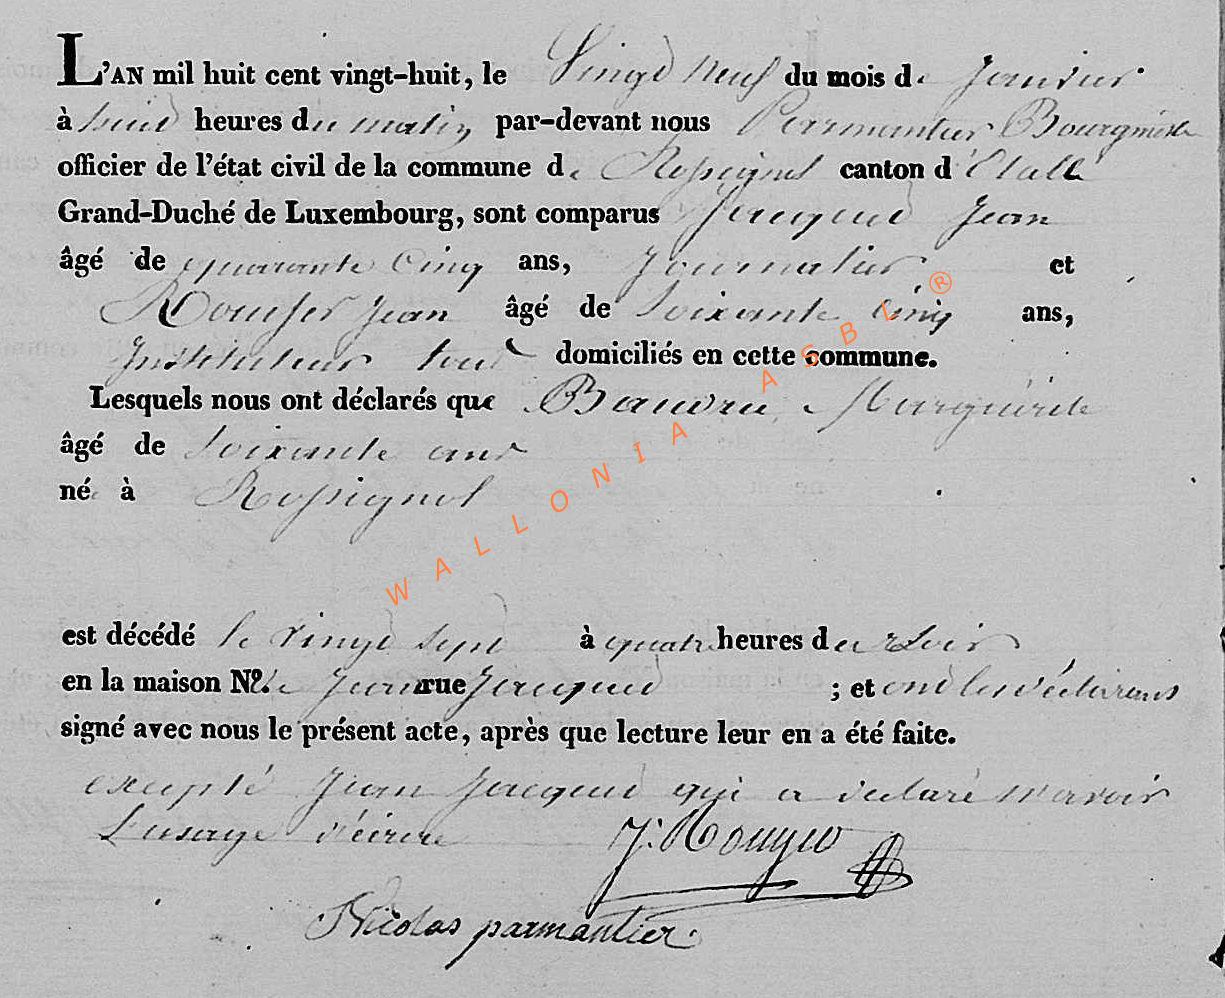 L'AN mil huit cent vingt-huit, le Vingt neuf du mois de Janvier
à huit heures du matin par-devant nous Parmantier Bourgmestre
officier de l'état civil de la commune de Rossignol canton d'Etalle
Grand-Duché de Luxembourg, sont comparus Jacquet Jean
âgé de quarante Cinq ans, Journalier et
Jean âgé de Soixante Cinq ans,
Instituteur tout domiciliés en cette commune.
Lesquels nous ont déclarés que Baudru Marguérite
âgé de Soixante ans
née à Rossignol
est décédé le vingt Sept à quatre heures du Soir
en la maison No. de Jean rue Jacquet ; et ont les déclarans
signé avec nous le présent acte, après que lecture leur en a été faite.
excepté Jean Jacquet qui a declaré n'avoir
L'usage d'écrire J. Rougeo
Nicolas parmantier
WALLONIA ASBL ®